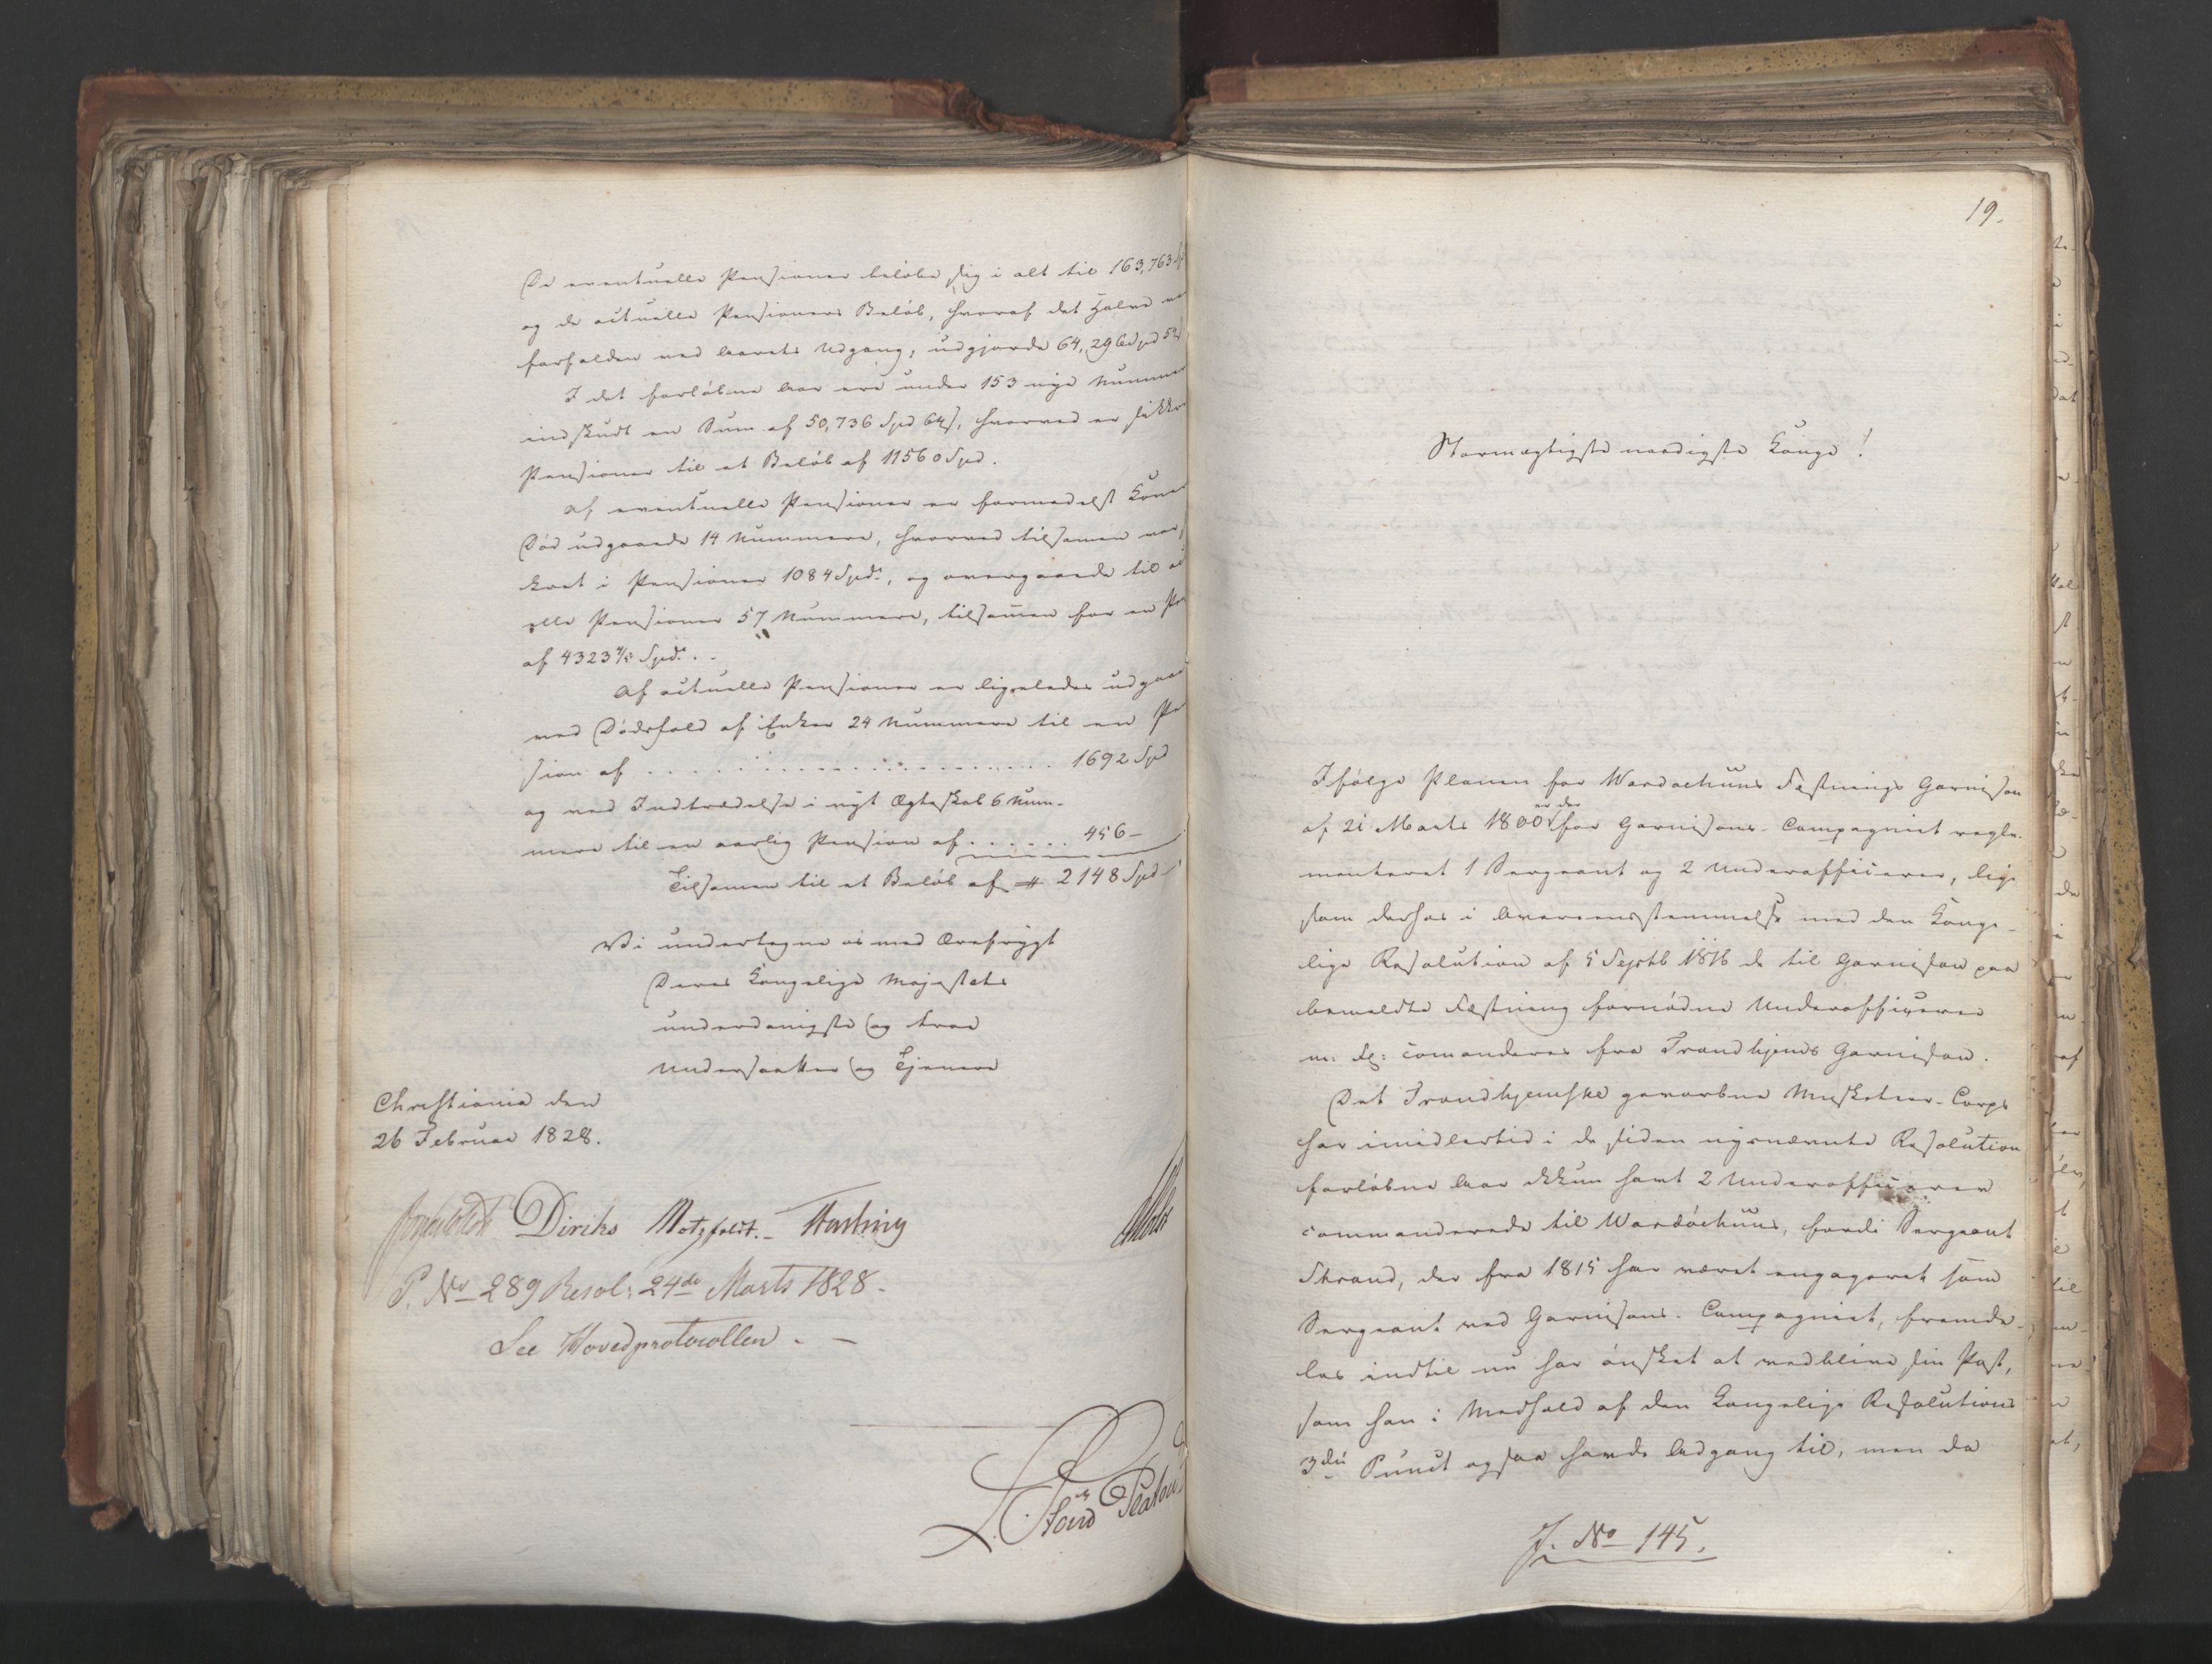 De eventuelle Pensioner beløbe sig i alt til 163,763
og de actuelle Pensioners Beløb, hvoraf det Halve
forfalden ved Aarets Udgang, udgjorde 64,296 Spd
I det forløbne Aar ere under 153 nye Numme
indskudt en Sum af 50,736 Spd 64 s, hvorved er sikkr
Pensioner til et Beløb af 11560 Spd.
Af eventuelle Pensioner er formedelst Kone
Død udgaaede 14 Nummere, hvorved tilsamen var
kret i Pensioner 1084 Spd., og overgaaede til
elle Pensioner 57 Nummere, tilsamen for en
af 4323 Spd.
Af actuelle Pensioner er ligeledes udgaa
ved Dødsfald af Enker 24 Nummere til en Pe
sion af . . . . . . . . . . . . 1692 Spd
og ved Indtrædelse i nyt Ægteskab 6 Num-
mere til en aarlig Pension af . . . . . . 456 –
Tilsamen til et Beløb af 2148 Spd
Vi undertegne os med Ærefrygt
Deres Kongelige Majestæts
underdanigste og troe
Undersaatter og Tjenere
Christiania den
26 Februar 1828.
Diriks Motzfeldt.
P. No 289 Resol: 24de Marts 1828.
See Hovedprotocollen. –
19.
Stormægtigste naadigste Konge!
Ifølge Planen for Wardøehuus Fæstnings Garnison
af 21 Marts 1800 er der for Garnisons-Compagniet regle-
menteret 1 Sergeant og 2 Underofficerer, lige
som derhos i Overeensstemmelse med den Konge-
lige Resolution af 5 Septb 1816 de til Garnison paa
bemeldte Fæstning fornødne Underofficerer
m: fl: comanderes fra Trondhjems Garnison.
Det Trondhjemske gevorbne Musketeer-Corps
har imidlertid i de siden nysnævnte Resolution
forløbne Aar ikkun havt 2 Underofficerer
commanderede til Wardøehuus, fordi Sergeant
Strand, der fra 1815 har været engageret som
Sergeant ved Garnisons-Compagniet, fremde-
les indtil nu har ønsket at vedblive sin Post,
som han i Medhold af den Kongelige Resolutions
3die Punct ogsaa havde Adgang til, men da
J. No 145.